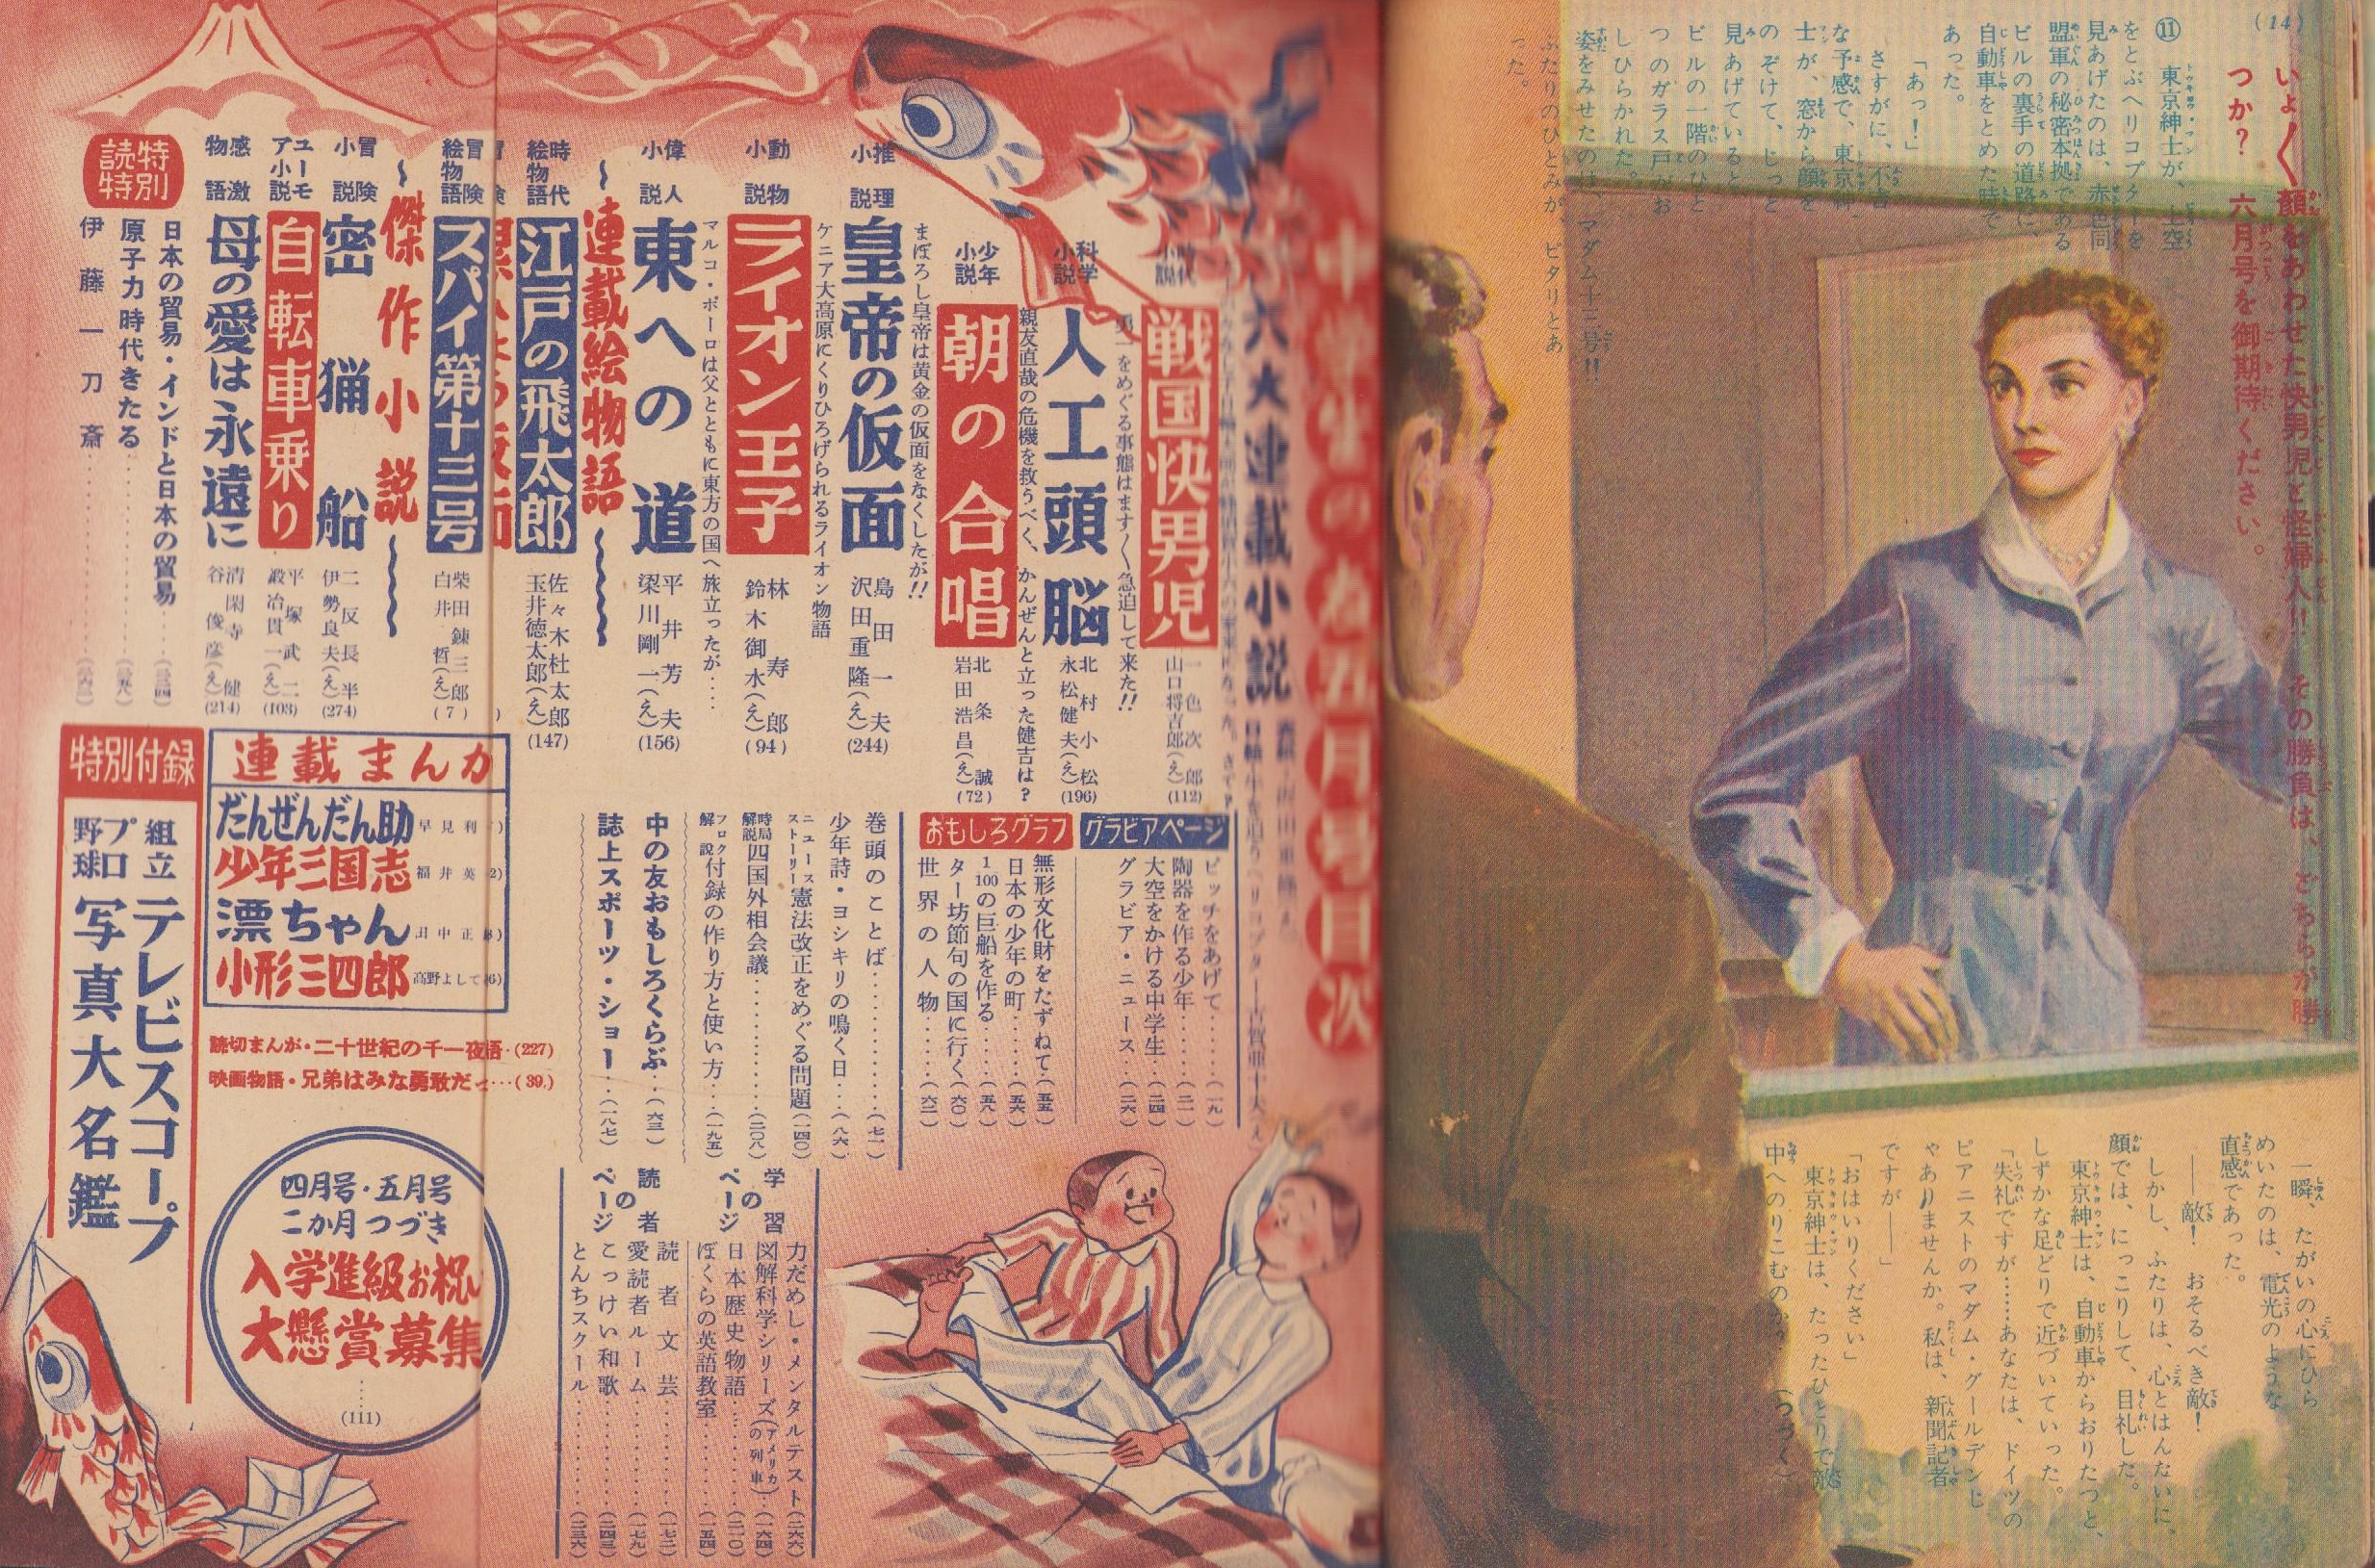 (14)
いよ〱顔をあわせた快男児と怪婦人!! その勝負は、どちらが勝
つか? 六月号を御期待ください。
⑪ 東京紳士が、上空
をとぶヘリコプターを
見あげたのは、赤色同
盟軍の秘密本拠である
ビルの裏手の道路に、
自動車をとめた時で
あった。
「あっ!」
さすがに、不吉
な予感で、東京紳
士が、窓から顔を
のぞけて、じっと
見あげていると、
ビルの一階のひと
つのガラス戸がお
しひらかれた。
姿をみせたのは、マダム十三号!!
ふたりのひとみが、ピタリとあ
った。
一瞬、たがいの心にひら
めいたのは、電光のような
直感であった。
――敵! おそるべき敵!
しかし、ふたりは、心とはんたいに、
顔では、にっこりして、目礼した。
東京紳士は、自動車からおりたつと、
しずかな足どりで近づいていった。
「失礼ですが……あなたは、ドイツの
ピアニストのマダム・グールデンじ
ゃありませんか。私は、新聞記者
ですが――」
「おはいりください」
東京紳士は、たったひとりで敵
中へのりこむのか?
(つづく)
中学生の友五月号目次
六大連載小説
時代小説
戦国快男児
一色次郎
山口将吉郎(え)
(112)
勇一をめぐる事態はます〱急迫して来た!!
科学小説
人工頭脳
北村小松
永松健夫(え)
(196)
親友直哉の危機を救うべく、かんぜんと立った健吉は?
少年小説
朝の合唱
北条誠
岩田浩昌(え)
(72)
まぼろし皇帝は黄金の仮面をなくしたが!!
推理小説
皇帝の仮面
島田一夫
沢田重隆(え)
(244)
ケニア大高原にくりひろげられるライオン物語
動物小説
ライオン王子
林寿郎
鈴木御水(え)
(94)
マルコ・ポーロは父とともに東方の国へ旅立ったが‥‥
偉人小説
東への道
平井芳夫
梁川剛一(え)
(156)
連載絵物語
時代絵物語
江戸の飛太郎
佐々木杜太郎
玉井徳太郎(え)
(147)
冒険絵物語
スパイ第十三号
柴田錬三郎
白井哲(え)
(7)
傑作小説
冒険小説
密猟船
二反長半
伊勢良夫(え)
(274)
ユーモア小説
自転車乗り
平塚武二
鍛冶貫一(え)
(103)
感激物語
母の愛は永遠に
清閑寺健
谷俊彦(え)
(214)
特別読特
日本の貿易・インドと日本の貿易
原子力時代きたる
伊藤一刀斎
グラビアページ
ピッチをあげて‥‥‥(一九)
陶器を作る少年‥‥‥(二一)
大空をかける中学生‥(二四)
グラビア・ニュース‥(二六)
おもしろグラフ
無形文化財をたずねて‥(五五)
日本の少年の町‥‥‥(五六)
1/100の巨船を作る‥‥(五八)
ター坊節句の国に行く(六〇)
世界の人物‥‥‥(六二)
巻頭のことば‥‥‥‥(七一)
少年詩・ヨシキリの鳴く日‥(八六)
ニュースストーリー 憲法改正をめぐる問題(一四〇)
時局解説 四国外相会議‥‥‥‥(二〇八)
フロク解説 付録の作り方と使い方‥‥(一九五)
中の友おもしろくらぶ‥(六三)
誌上スポーツ・ショー‥(一八七)
学習のページ
力だめし・メンタルテスト(二六六)
図解科学シリーズ(アメリカの列車)‥(一六四)
日本歴史物語‥‥‥‥(二一〇)
ぼくらの英語教室‥‥‥(一五四)
読者のページ
読者文芸‥‥‥‥(一七二)
愛読者ルーム‥‥‥(一七九)
こっけい和歌‥‥‥(二四三)
とんちスクール‥‥‥(二三六)
連載まんが
だんぜんだん助 早見利
少年三国志 福井英
漂ちゃん 田中正
小形三四郎 高野よして
読切まんが・二十世紀の千一夜物語‥(227)
映画物語・兄弟はみな勇敢だっ‥‥(39)
四月号・五月号
二か月つづき
入学進級お祝い
大懸賞募集
(111)
特別付録
組立 テレビスコープ
プロ野球 写真大名鑑